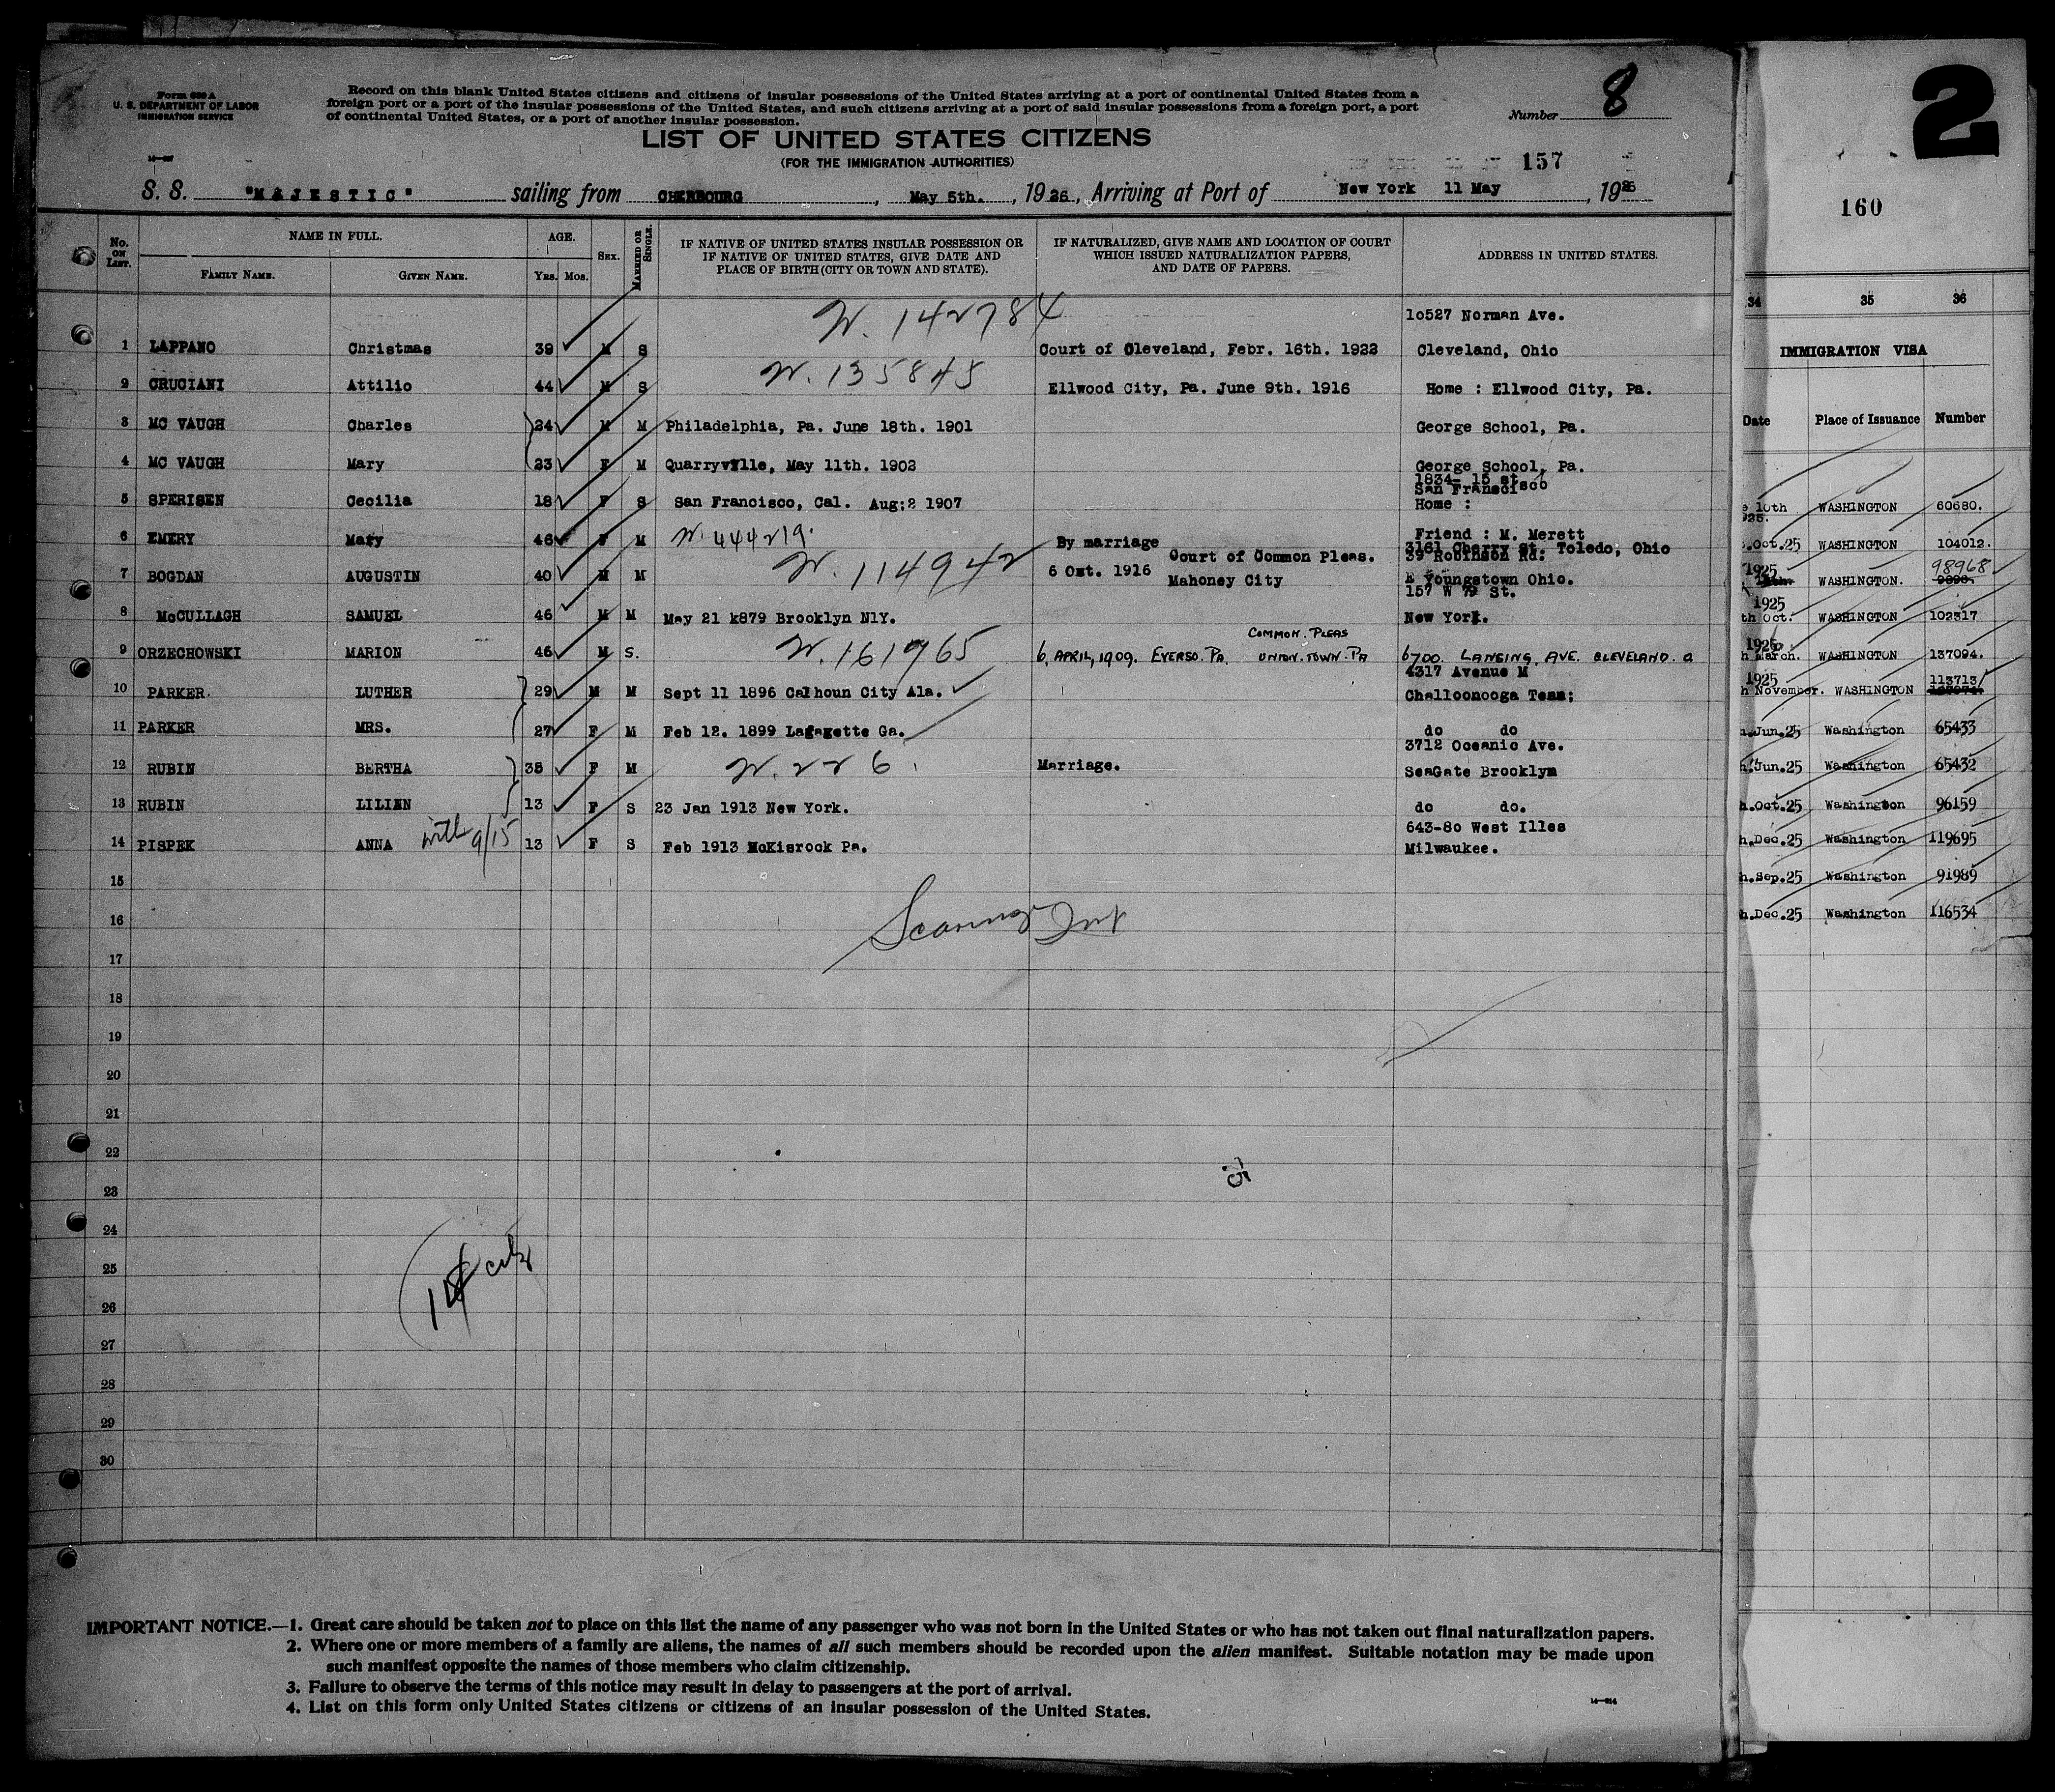 Form 630 A
U. S. DEPARTMENT OF LABOR
IMMIGRATION SERVICE
Record on this blank United States citizens and citizens of insular possessions of the United States arriving at a port of continental United States from a
foreign port or a port of the insular possessions of the United States, and such citizens arriving at a port of said insular possessions from a foreign port, a port
of continental United States, or a port of another insular possession.
Number 8
LIST OF UNITED STATES CITIZENS
(FOR THE IMMIGRATION AUTHORITIES)
157
S. S. "MAJESTIC" sailing from CHERBOURG, May 5th., 1926, Arriving at Port of New York 11 May, 1926
No. ON LIST.
NAME IN FULL.
FAMILY NAME. GIVEN NAME.
AGE.
Yrs. Mos.
SEX.
MARRIED OR SINGLE.
IF NATIVE OF UNITED STATES INSULAR POSSESSION OR
IF NATIVE OF UNITED STATES, GIVE DATE AND
PLACE OF BIRTH (CITY OR TOWN AND STATE).
IF NATURALIZED, GIVE NAME AND LOCATION OF COURT
WHICH ISSUED NATURALIZATION PAPERS,
AND DATE OF PAPERS.
ADDRESS IN UNITED STATES.
N. 142784 10527 Norman Ave.
1 LAPPANO Christmas 39 M S Court of Cleveland, Febr. 16th. 1922 Cleveland, Ohio
2 CRUCIANI Attilio 44 M S N. 135845 Ellwood City, Pa. June 9th. 1916 Home : Ellwood City, Pa.
3 MC VAUGH Charles 24 M M Philadelphia, Pa. June 18th. 1901 George School, Pa.
4 MC VAUGH Mary 23 F M Quarryville, May 11th. 1902 George School, Pa.
1834- 15 st
San Francisco
5 SPERISEN Cecilia 18 F S San Francisco, Cal. Aug:2 1907 Home :
Friend : M. Merett
6 EMERY Mary 46 F M N. 444219. By marriage 3161 Cherry St. Toledo, Ohio
Court of Common Pleas. 39 Robinson Rd.
7 BOGDAN AUGUSTIN 40 M M N. 114942 6 Oct. 1916 Mahoney City E Youngstown Ohio.
157 W 79 St.
8 McCULLAGH SAMUEL 46 M M May 21 k879 Brooklyn NlY. New York.
COMMON. PLEAS
9 ORZECHOWSKI MARION 46 M S. N. 161965 6, APRIL, 1909. EVERSO. PA. UNION.TOWN.PA 6700. LANSING. AVE. CLEVELAND. O
4317 Avenue M
10 PARKER. LUTHER 29 M M Sept 11 1896 Calhoun City Ala. Challoonooga Tenn;
11 PARKER MRS. 27 F M Feb 12. 1899 Lafagette Ga. do do
3712 Oceanic Ave.
12 RUBIN BERTHA 35 F M N. 226. Marriage. SeaGate Brooklyn
13 RUBIN LILIEN 13 F S 23 Jan 1913 New York. do do.
643-80 West Illes
14 PISPEK ANNA with 9/15 13 F S Feb 1913 McKisrock Pa. Milwaukee.
15
16
17
18
19
20
21
22
23
24
25
26
27
28
29
30
IMPORTANT NOTICE.—1. Great care should be taken not to place on this list the name of any passenger who was not born in the United States or who has not taken out final naturalization papers.
2. Where one or more members of a family are aliens, the names of all such members should be recorded upon the alien manifest. Suitable notation may be made upon
such manifest opposite the names of those members who claim citizenship.
3. Failure to observe the terms of this notice may result in delay to passengers at the port of arrival.
4. List on this form only United States citizens or citizens of an insular possession of the United States.
2
160
34 35 36
IMMIGRATION VISA
Date Place of Issuance Number
10th WASHINGTON 60680.
.Oct.25 WASHINGTON 104012.
1925 WASHINGTON. 98968
1925
th Oct. WASHINGTON 102317
1926
h March. WASHINGTON 137094.
1925 113713
h November. WASHINGTON
.Jun.25 Washington 65433
.Jun.25 Washington 65432
h.Oct.25 Washington 96159
h.Dec.25 Washington 119695
h.Sep.25 Washington 91989
h.Dec.25 Washington 116534